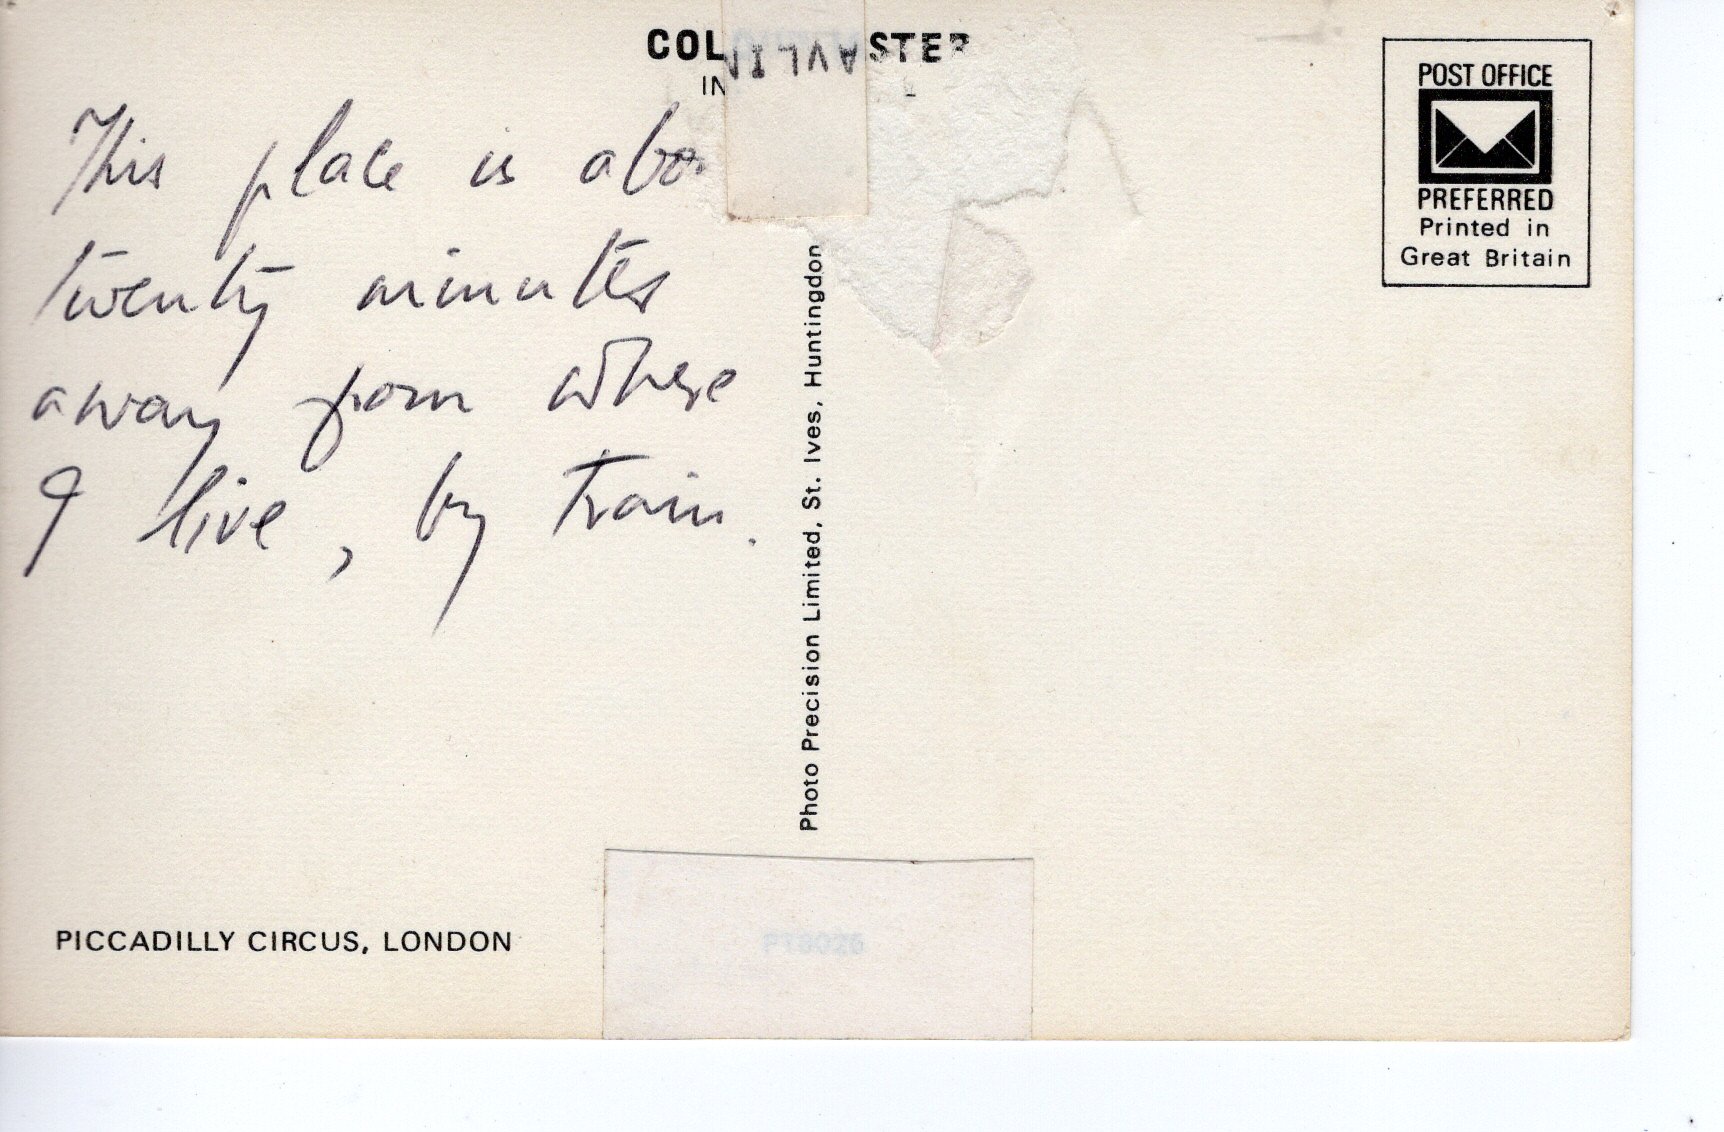 COL STER
IN
This place is abo
twenty minutes
away from where
I live, by train.
POST OFFICE
PREFERRED
Printed in
Great Britain
Photo Precision Limited, St. Ives, Huntingdon
PICCADILLY CIRCUS, LONDON